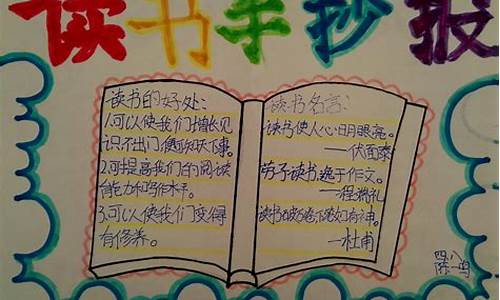 读书手抄报
读书的好处:
1.可以使我们增长见
识不出门,便可知天下事。
2.可提高我们的阅读
能力和写作水平。
3.可以使我们变得
有修养。
读书名言:
读书使人心明眼亮。
—伏面泰
劳于读书,逸于作文。
—程端礼
读书破万卷下笔如有神。
—杜甫
四、八
陈一鸣